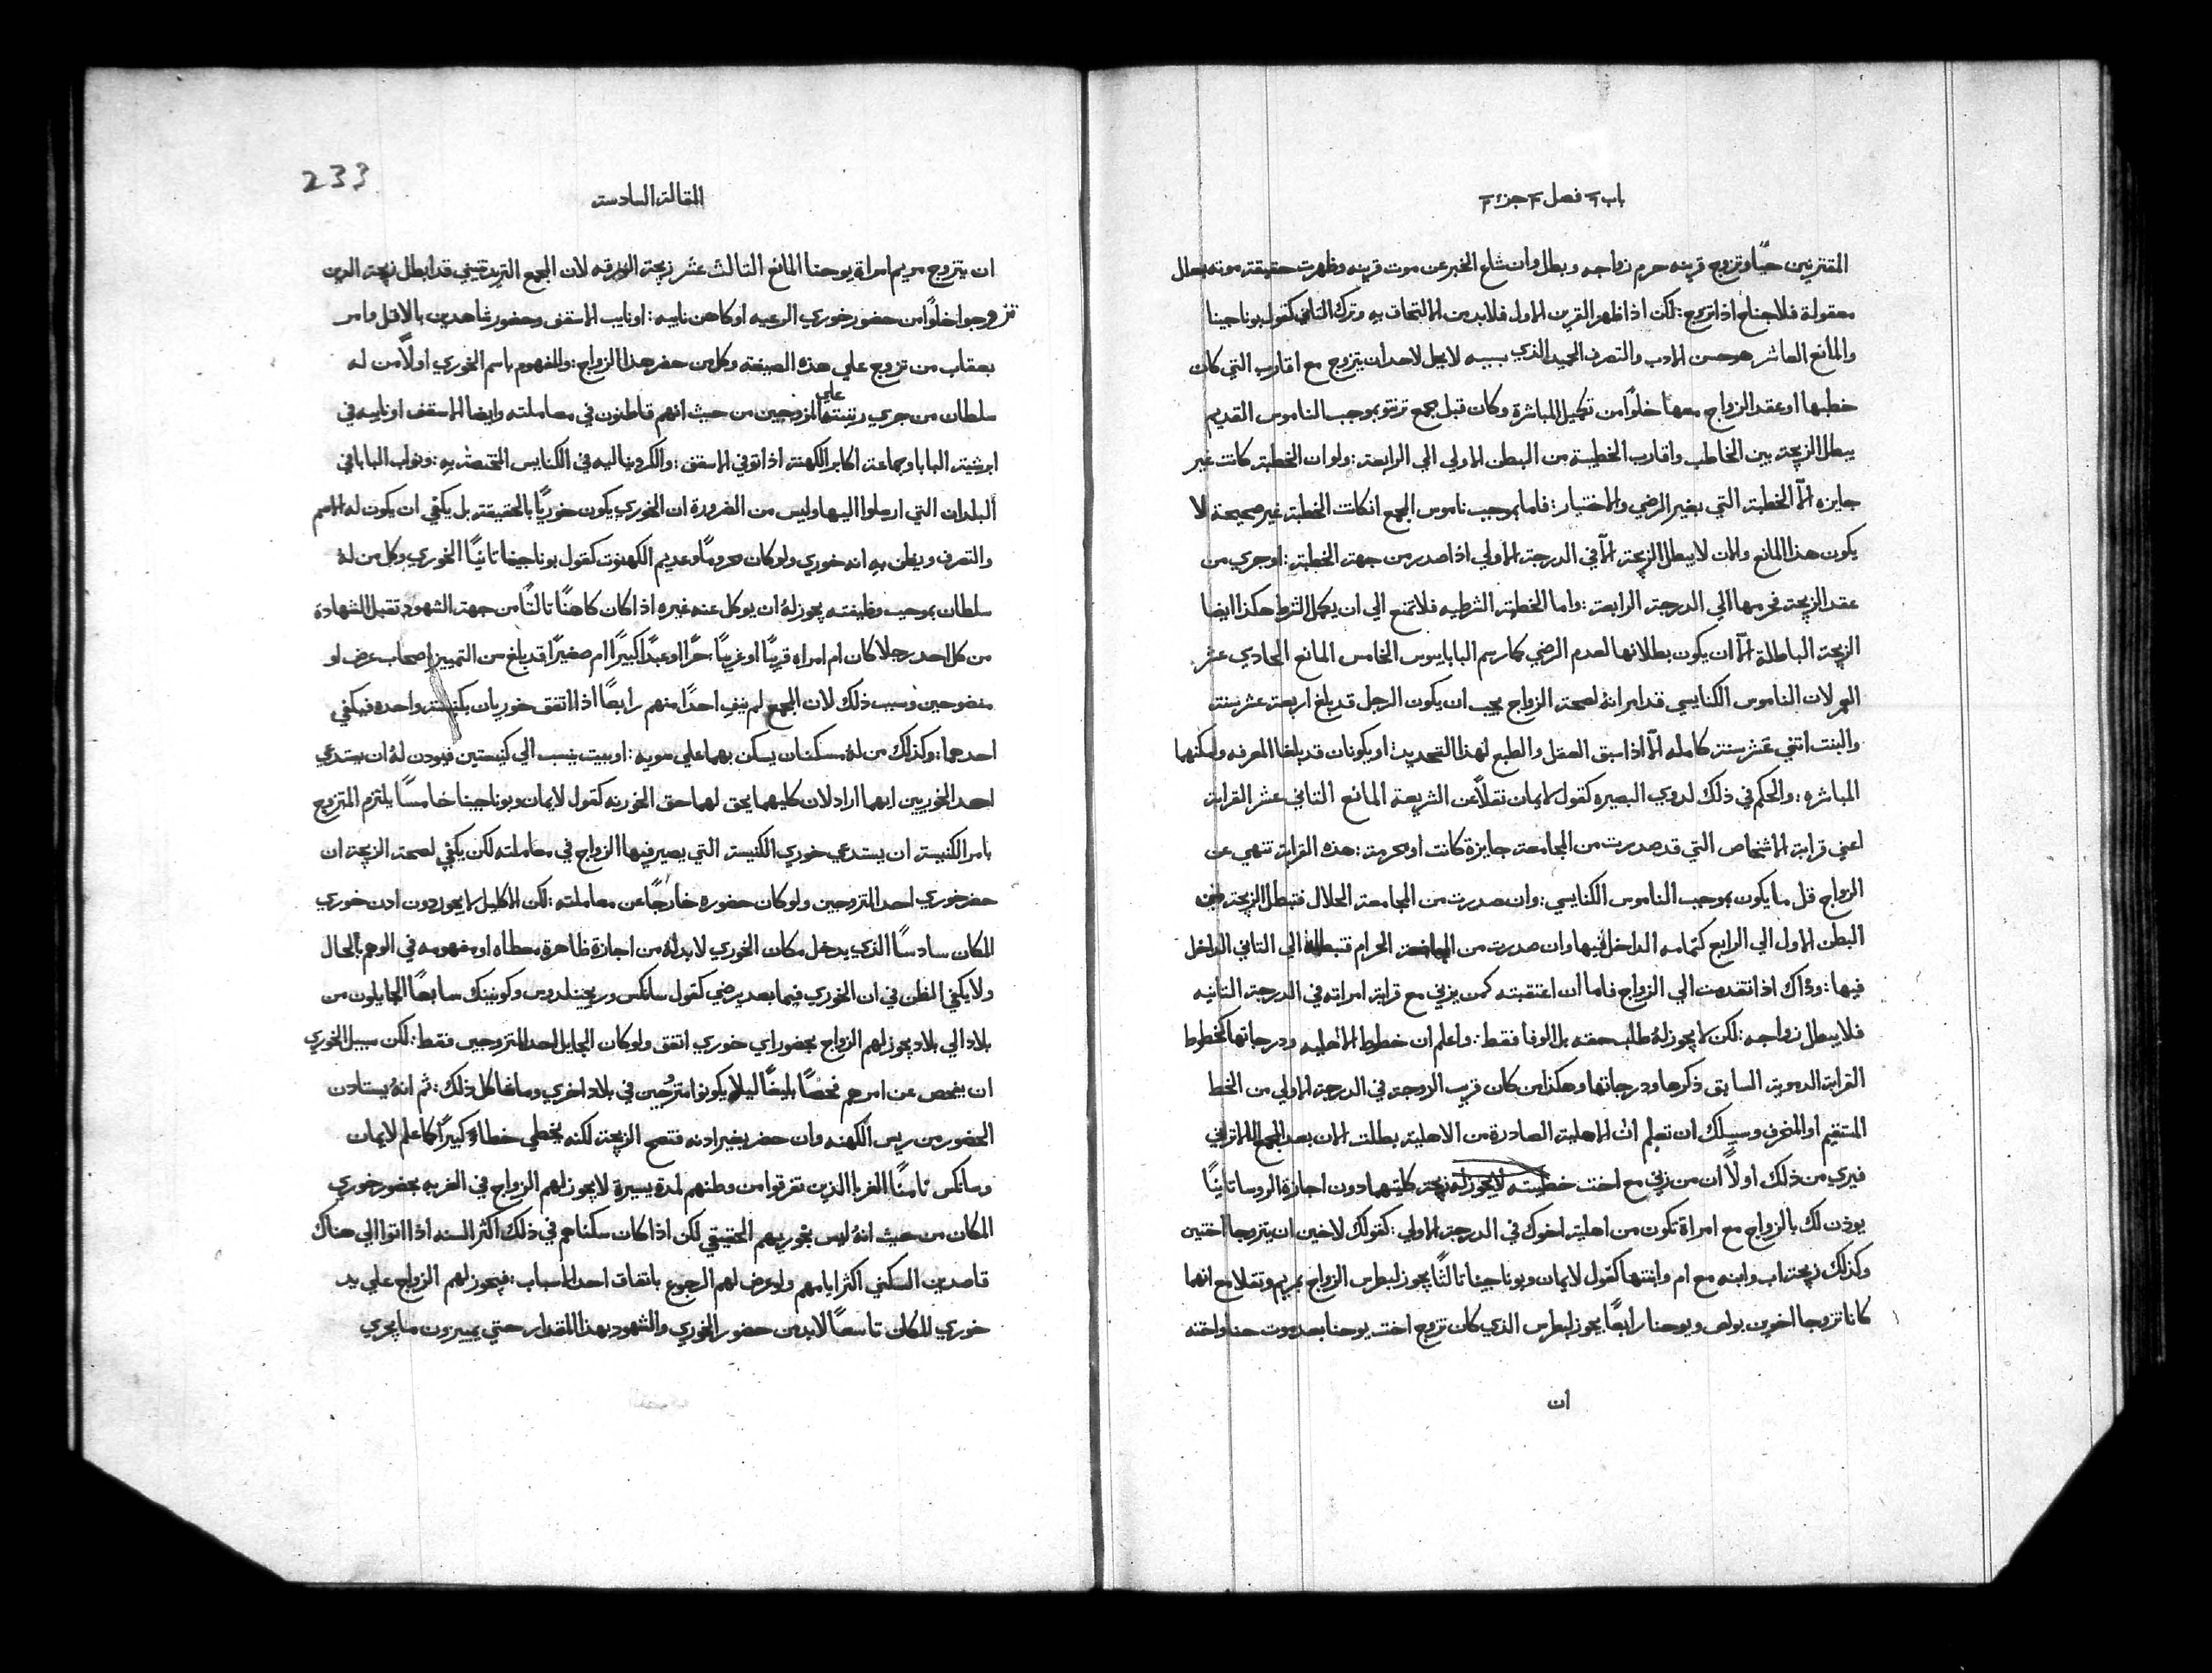 باب ٦ فصل ٣ جزء ٣
المقترنين حيًا وتزوج قرينه حرم زواجه وبطل وان شاع الخبر عن موت قرينه وظهرت حقيقة موته بعلل
معقولة فلا جناح اذا تزوج: لكن اذا ظهر القرين الاول فلا بد من الالتحاق به وترك الثاني كقول بوناجينا
والمانع العاشر هو حسن الادب والتصرف الحميد الذي بسببه لا يحل لاحد ان يتزوج مع اقارب التي كان
خطبها او عقد الزواج معها خلوًا من تكميل المباشرة وكان قبل مجمع ترنتو بموجب الناموس القديم
يبطل الزيجة بين الخاطب واقارب الخطيبة من البطن الاولي الي الرابعة: ولو ان الخطبة كانت غير
جايزه الّا الخطبة التي بغير الرضي والاختيار: فاما بموجب ناموس المجمع ان كانت الخطبة غير صحيحة لا
يكون هذا المانع والان لا يبطل الزيجة الّا في الدرجة الاولي اذا صدر من جهة الخطبة: او جري من
عقد الزيجة فحرمها الي الدرجة الرابعة: واما الخطبة الشرطيه فلا تمنع الي ان يكمل الشرط هكذا ايضا
الزيجة الباطلة الّا ان يكون بطلانها لعدم الرضي كما رسم البابا بيوس الخامس المانع الحادي عشر
العمر لان الناموس الكنايسي قد امر انهُ لصحة الزواج يجب ان يكون الرجل قد بلغ اربعة عشر سنة
والبنت اثني عشر سنة كامله الّا اذا سبق العقل والطبع لهذا التحديد: او يكونان قد بلغا المعرفه وامكنهما
المباشره: والحكم في ذلك لدوي البصيره كقول لايمان نقلًا عن الشريعة المانع الثاني عشر القرابة
اعني قرابة الاشخاص التي قد صدرت من المجامعة جايزة كانت او محرمة: هذه القرابة تنهي عن
الزواج قل ما يكون بموجب الناموس الكنايسي: وان صدرت من المجامعة الحلال فتبطل الزيجة من
البطن الاول الي الرابع كتمامه الداخل فيها وان صدرت من المجامعة الحرام فتبطله الي الثاني الداخل
فيها: وذاك اذا تقدمت الي الزواج فاما ان اعتقبته كمن يزني مع قرابة امراته في الدرجة الثانيه
فلا يبطل زواجه: لكن لا يجوز لهُ طلب حقه بل الوفا فقط: واعلم ان خطوط الاهليه ودرجاتها كخطوط
القرابة الدمويه السابق ذكرها ودرجاتها وهكذا من كان قريب الزوجة في الدرجة الاولي من الخط
المستقيم او المنحرف وسبيلك ان تعلم ان الاهلية الصادرة من الاهلية بطلت الان بعد المجمع اللاتراني
فيري من ذلك اولًا ان من زني مع اخت خطيبته لا يجوز له زيجة كلتيهما دون اجازة الروسا ثانيًا
يوذن لك بالزواج مع امراة تكون من اهلية اخوك في الدرجة الاولي: كقولك لاخين ان يتزوجا اختين
وكذلك زيجة اب وابنه مع ام وابنتها كقول لايمان وبوناجينا ثالثًا يجوز لبطرس الزواج بمريم وتقلا مع انهما
كانا تزوجا اخوين بولص ويوحنا رابعًا يجوز لبطرس الذي كان تزوج اخت يوحنا بعد موت حنا واخته
ان
233
المقالة السادسة
ان يتزوج مريم امراة يوحنا المانع الثالث عشر زيجة السرقه لان المجمع التريدنتيني قد ابطل زيجة الدين
تزوجوا خلوًا من حضور خوري الرعيه او كاهن نايبه: او نايب الاسقف وحضور شاهدين بالاقل وامر
بعقاب من تزوج علي هذه الصيغة وكل من حضر هذا الزواج: والمفهوم باسم الخوري اولًا من له
سلطان من جري رتبتها علي المزوجين من حيث انهم قاطنون في معاملته وايضا الاسقف او نايبه في
ابرشيته البابا وجماعة اكابر الكهنة اذا توفي الاسقف: والكردينالية في الكنايس المختصة به: ونواب البابا في
البلدان التي ارسلوا اليها وليس من الضرورة ان الخوري يكون خوريًا بالحقيقة بل يكفي ان يكون له الاسم
والتصرف ويظن به انه خوري ولو كان محرومًا وعديم الكهنوت كقول بوناجينا ثانيًا الخوري وكل من لهُ
سلطان بموجب وظيفته يجوز لهُ ان يوكل عنه غيره اذا كان كاهنًا ثالثًا من جهة الشهود تقبل الشهادة
من كل احد رجلا كان ام امراه قريبًا او غريبًا: حرًا او عبدًا كبيرًا ام صغيرًا قد بلغ سن التمييز اصحاب عرض او
مفضوحين وسبب ذلك لان المجمع لم ينف احدًا منهم رابعًا اذا اتفق خوريان بكنيسة واحده فيكفي
احدهما: وكذلك من لهُ مسكنان يسكن بهما علي سويه: او بيت ينسب الي كنيستين فيودن لهُ ان يستدعي
احد الخوريين ايهما اراد لان كليهما يحق لهما حق الخورنه كقول لايمان وبوناجينا خامسًا يلتزم المتزوج
بامر الكنيسة ان يستدعي خوري الكنيسة التي يصير فيها الزواج في معاملته لكن يكفي لصحة الزيجة ان
حضر خوري احد المتزوجين ولو كان حضوره خارجًا عن معاملته: لكن الاكليل لا يجوز دون ادن خوري
المكان سادسًا الذي يدخل مكان الخوري لا بد لهُ من اجازة ظاهرة معطاه او مفهومه في الوهم بالحال
ولا يكفي الظن في ان الخوري فيما بعد يرضي كقول سانكس وريجينلدوس وكونينك سابعًا الجايلون من
بلاد الي بلاد يجوز لهم الزواج بحضور اي خوري اتفق ولو كان الجايل احد المتزوجين فقط: لكن سبيل الخوري
ان يفحص عن امرهم فحصًا بليغًا ليلا يكونوا متزوجين في بلاد اخري وما شاكل ذلك: ثم انهُ يستادن
الحضور من ريس الكهنه وان حضر بغير ادنه فتصح الزيجة لكنه يخطي خطاءً كبيرًا كما علم لايمان
وسانكس ثامنًا الغربا الذين تفرقوا من وطنهم لمدة يسيرة لا يجوز لهم الزواج في الغربه بحضور خوري
المكان من حيث انهُ ليس بخوريهم الحقيقي لكن اذا كان سكناهم في ذلك اكثر السنه اذا اتوا الي هناك
قاصدين السكني اكثر ايامهم ولو عرض لهم الرجوع باتفاق احد الاسباب: فيجوز لهم الزواج علي يد
خوري المكان تاسعًا لا بد من حضور الخوري والشهود بهذا المقدار حتي يميزون ما يجري